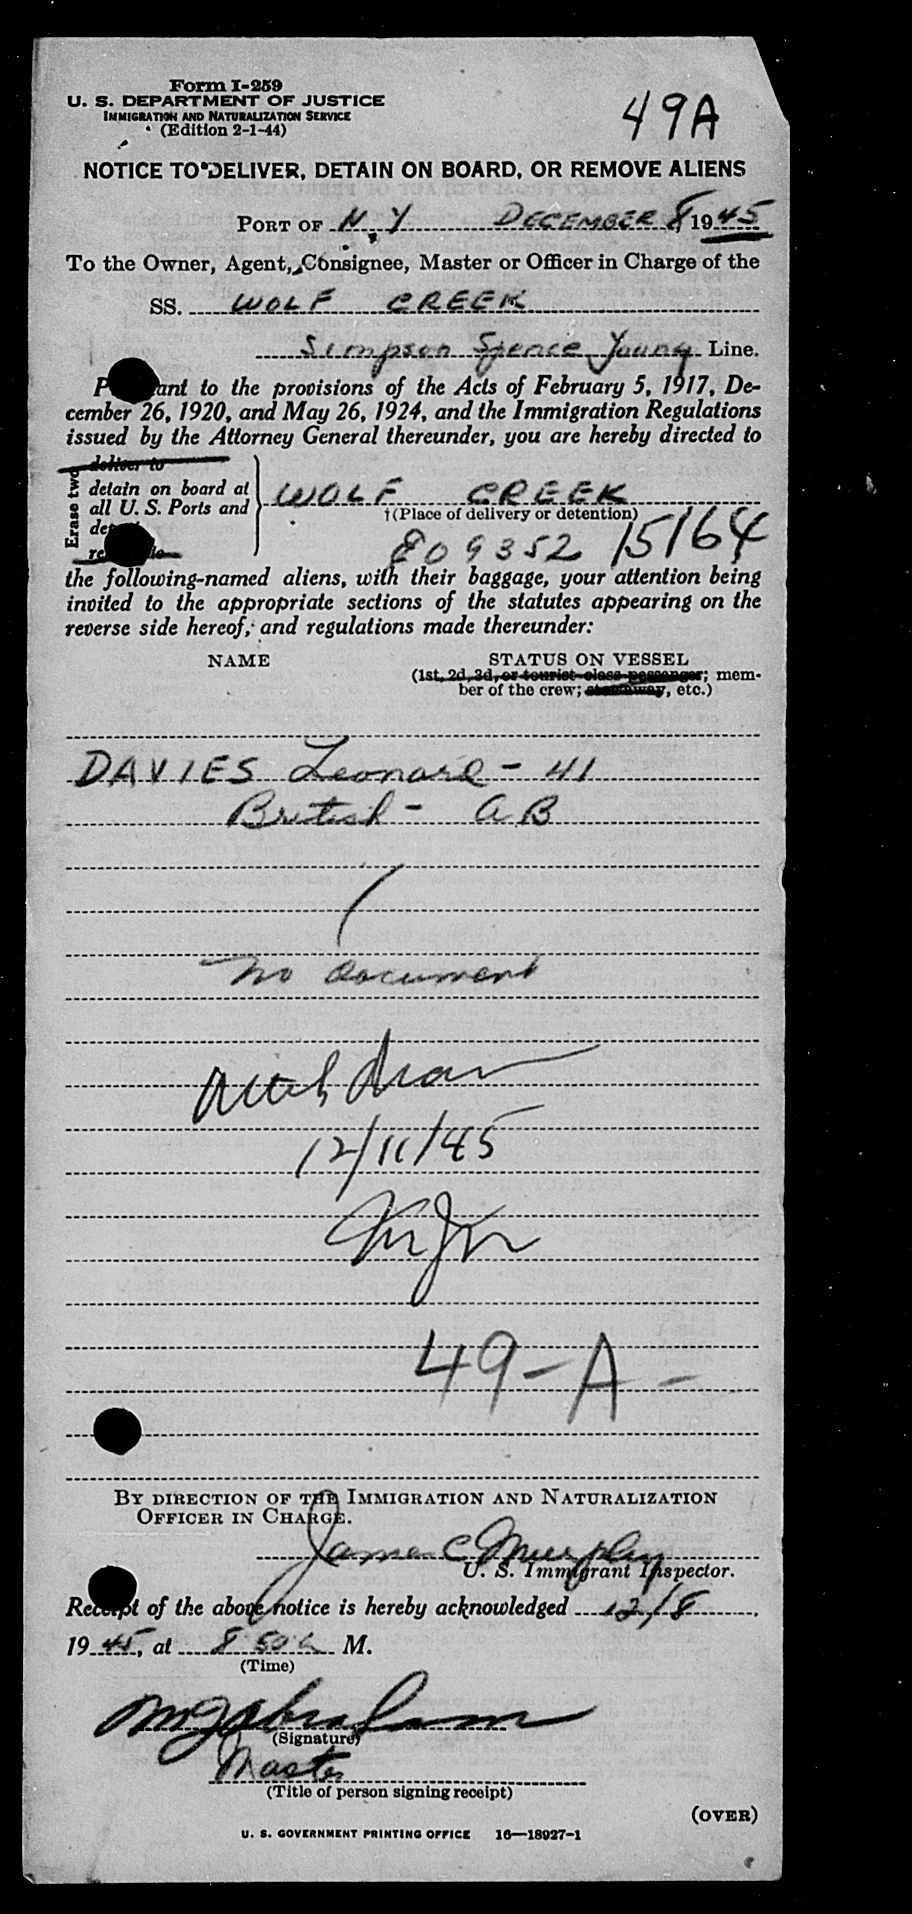 Form I-259
U. S. DEPARTMENT OF JUSTICE
IMMIGRATION AND NATURALIZATION SERVICE
(Edition 2-1-44)
49A
NOTICE TO DELIVER, DETAIN ON BOARD, OR REMOVE ALIENS
PORT OF N.Y DECEMBER 8, 1945
To the Owner, Agent, Consignee, Master or Officer in Charge of the
SS. WOLF CREEK
Simpson Spence Young Line.
to the provisions of the Acts of February 5, 1917, De-
cember 26, 1920, and May 26, 1924, and the Immigration Regulations
issued by the Attorney General thereunder, you are hereby directed to
Erase two
deliver to
detain on board at
all U. S. Ports and
WOLF CREEK
†(Place of delivery or detention)
809352 15164
the following-named aliens, with their baggage, your attention being
invited to the appropriate sections of the statutes appearing on the
reverse side hereof, and regulations made thereunder:
NAME STATUS ON VESSEL
(1st, 2d, 3d, or tourist class passenger; mem-
ber of the crew; stowaway, etc.)
DAVIES Leonard - 41
British - AB
No document
12/11/45
49-A-
BY DIRECTION OF THE IMMIGRATION AND NATURALIZATION
OFFICER IN CHARGE.
James C Murphy
U. S. Immigrant Inspector.
Receipt of the above notice is hereby acknowledged 12/8,
1945, at 8 50 M.
(Time)
(Signature)
Master
(Title of person signing receipt)
(OVER)
U. S. GOVERNMENT PRINTING OFFICE 16—18927-1